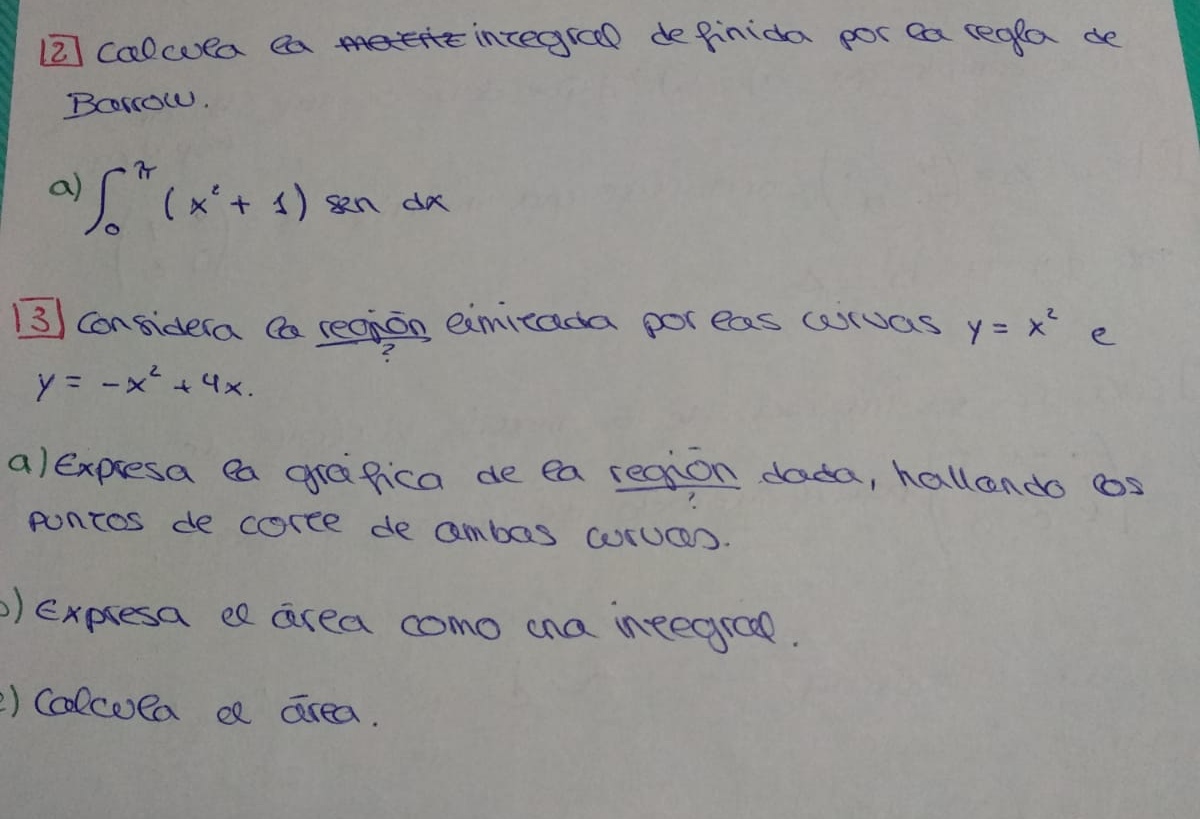 2 Calcula la matriz integral definida por la regla de
Barrow.
a) ∫₀^π (x² + 1) sen dx
3 Considera la región limitada por las curvas y = x² e
?
y = -x² + 4x.
a) Expresa la gráfica de la región dada, hallando los
?
puntos de corte de ambas curvas.
b) Expresa el área como una integral.
c) Calcula el área.